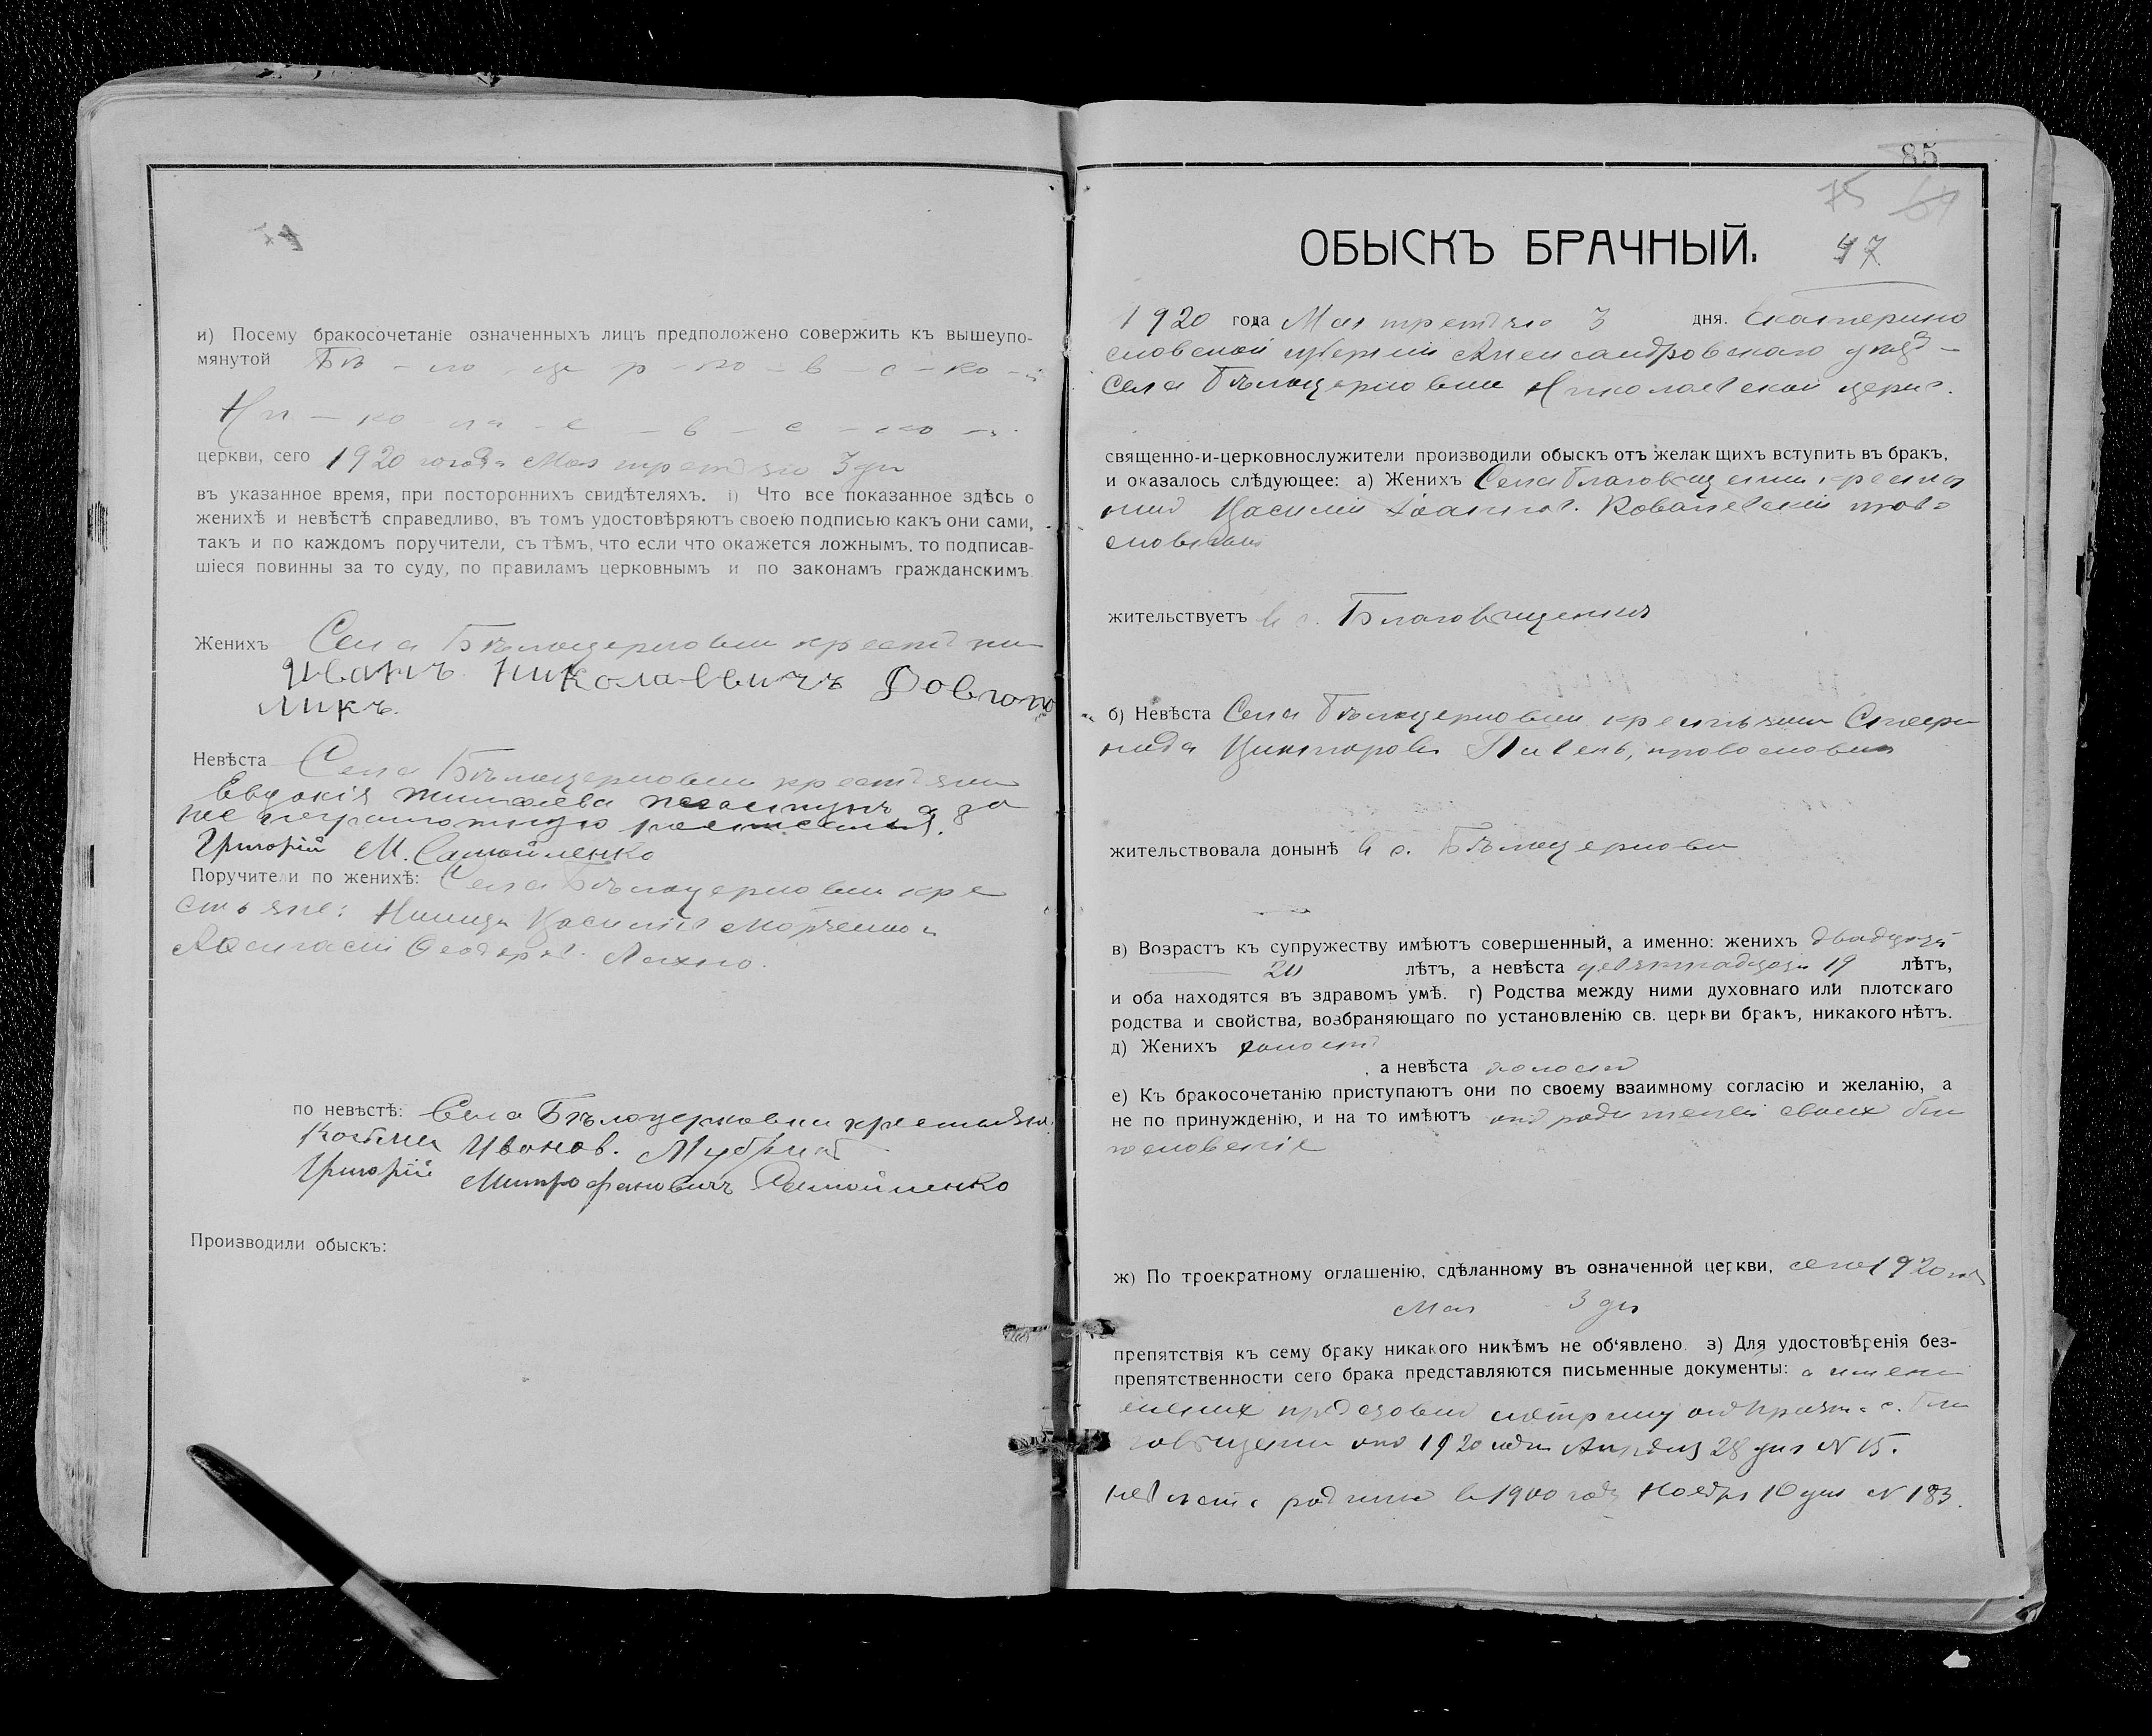 и) Посему бракосочетаніе означенныхъ лицъ предположено совержить къ вышеупо-
мянутой Бѣ - ло - це р - ко - в - с - ко - й
Ни - ко - ла - е - в - с - ко - й
церкви, сего 1920 года Мая третьяго 3 дня
въ указанное время, при постороннихъ свидѣтеляхъ. і) Что все показанное здѣсь о
женихѣ и невѣстѣ справедливо, въ томъ удостовѣряютъ своею подписью какъ они сами,
такъ и по каждомъ поручители, съ тѣмъ, что если что окажется ложнымъ, то подписав-
шіеся повинны за то суду, по правиламъ церковнымъ и по законамъ гражданскимъ
Женихъ Села Бѣлоцерковки крестьянин
Иванъ Николаевичъ Довгопо
ликъ.
Невѣста Села Бѣлоцерковки крестьянка
Евдокія а за
нее неграмотную
Григорій М. Самойленко
Поручители по женихѣ: Села Бѣлоцерковки кре
стьяне:
Афанасій Феодоров. Лахно.
по невѣстѣ: Села Бѣлоцерковки крестьяне
Иванов.
Григорій Митрофановичъ Самойленко
Производили обыскъ:
85
75 64
ОБЫСКЪ БРАЧНЫЙ. 47
1920 года Мая третьяго 3 дня. Екатерино
славской губерніи Александровскаго уѣзд-
Села Бѣлоцерковки Николаевской церкв.
священно-и-церковнослужители производили обыскъ отъ желающихъ вступить въ бракъ,
и оказалось слѣдующее: а) Женихъ Села Благовѣщенки крестья
нин Василій Іоаннов. Ковалевскій право
славнаго
жительствуетъ в с. Благовѣщенки
б) Невѣста Села Бѣлоцерковки крестьянка Спири
нида Викторов православн
жительствовала донынѣ в с. Бѣлоцерковки
в) Возрастъ къ супружеству имѣютъ совершенный, а именно: женихъ двадцать
20 лѣтъ, а невѣста девятнадцать 19 лѣтъ,
и оба находятся въ здравомъ умѣ. г) Родства между ними духовнаго или плотскаго
родства и свойства, возбраняющаго по установленію св. церкви бракъ, никакого нѣтъ.
д) Женихъ холост
, а невѣста холоста
е) Къ бракосочетанію приступаютъ они по своему взаимному согласію и желанію, а
не по принужденію, и на то имѣютъ от родителей своих бла
гословеніе
ж) По троекратному оглашенію, сдѣланному въ означенной церкви, сего 1920 год
Мая 3 дня
препятствія къ сему браку никакого никѣмъ не об‘явлено. з) Для удостовѣренія без-
препятственности сего брака представляются письменные документы: а имен
жених метрику с. Бла
говѣщенки от 1920 года Апреля 28 дня № 15.
невѣста родилась в 1900 году Ноября 10 дня № 183.